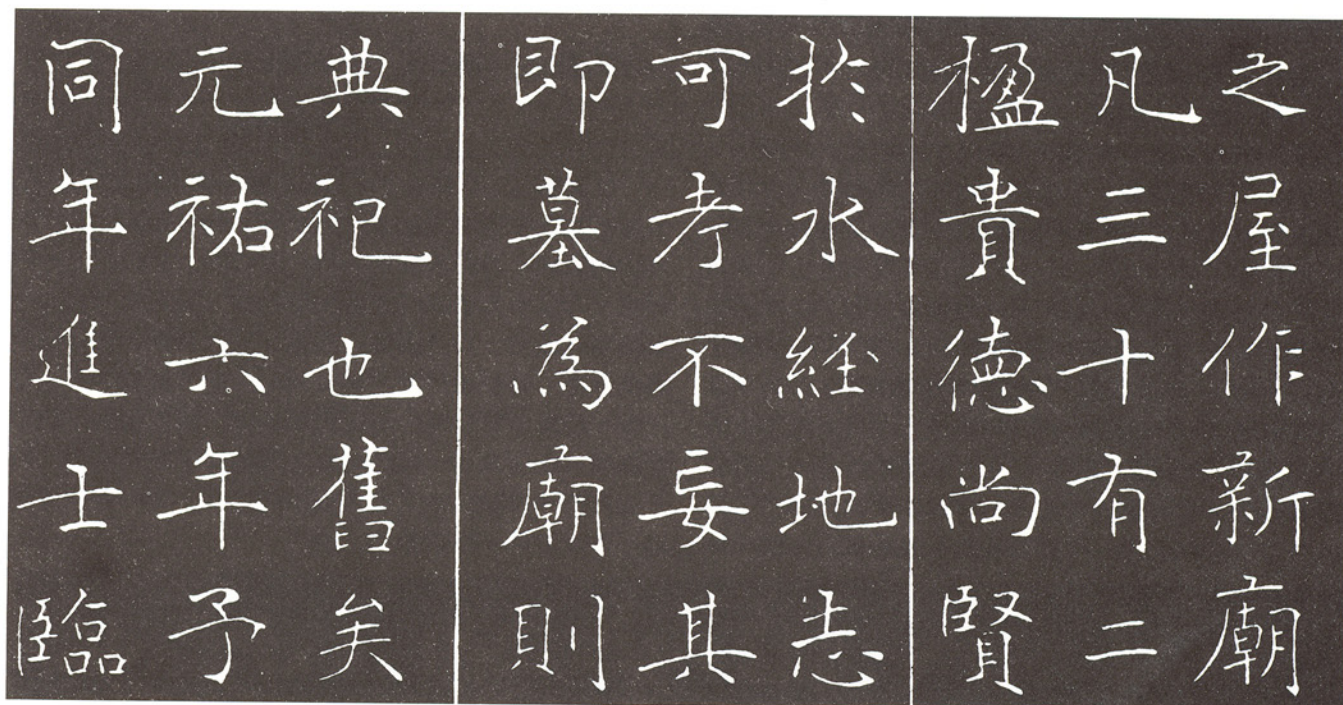 之屋作新廟
凡三十有二
楹貴德尚賢
於水經地志
可考不妄其
即墓為廟則
典祀也舊矣
元祐六年予
同年進士臨